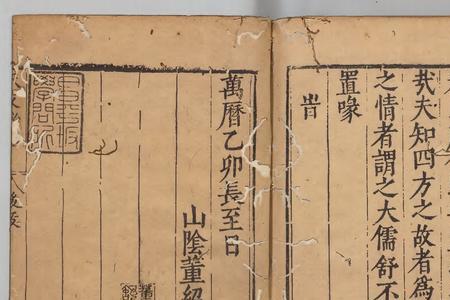 㢤夫知四方之故者爲
之情者謂之大儒舒不
置喙
旹
萬曆乙卯長至日
山陰董紹